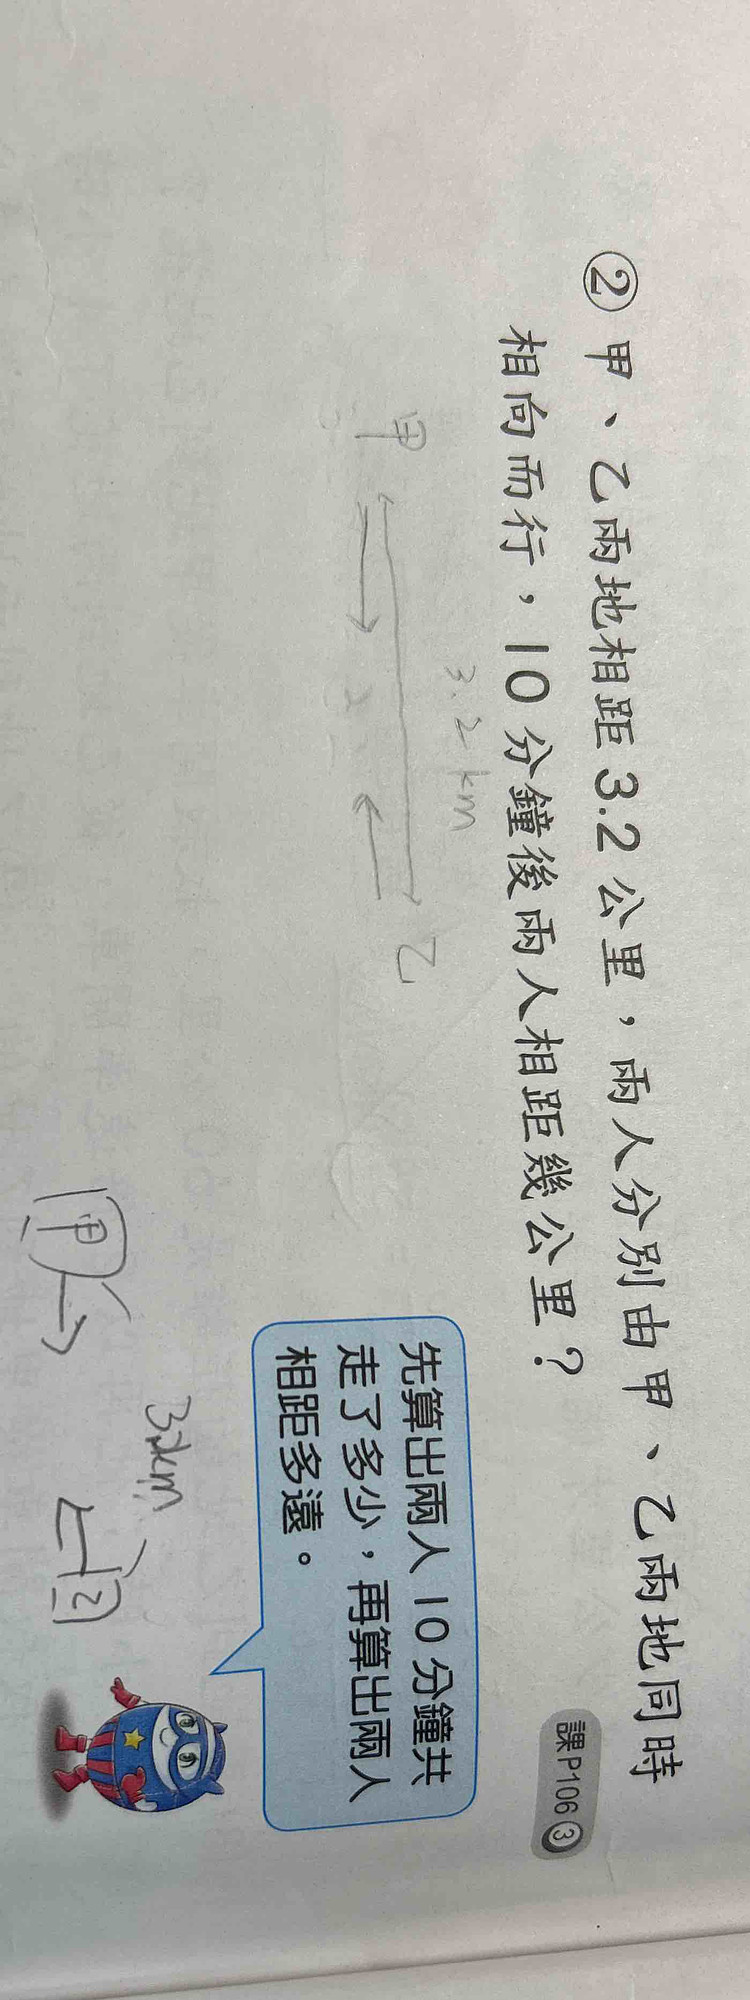 ② 甲、乙兩地相距 3.2 公里，兩人分別由甲、乙兩地同時
相向而行，10 分鐘後兩人相距幾公里？
課P106 ③
3.2 km
甲
乙
先算出兩人 10 分鐘共
走了多少，再算出兩人
相距多遠。
甲